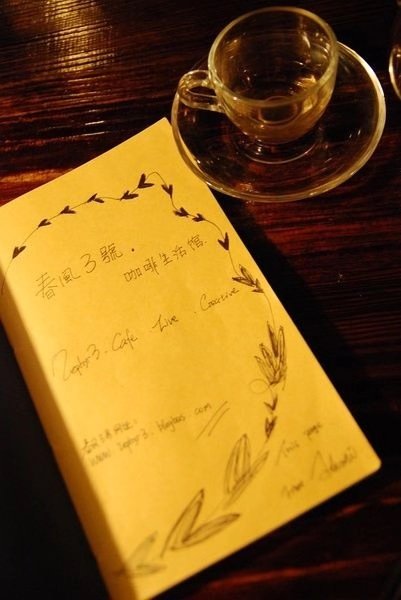 春風3號．
咖啡生活館．
Zephyr3. Cafe Live. Creative
www.zephyr3.blogbus.com
This page
from